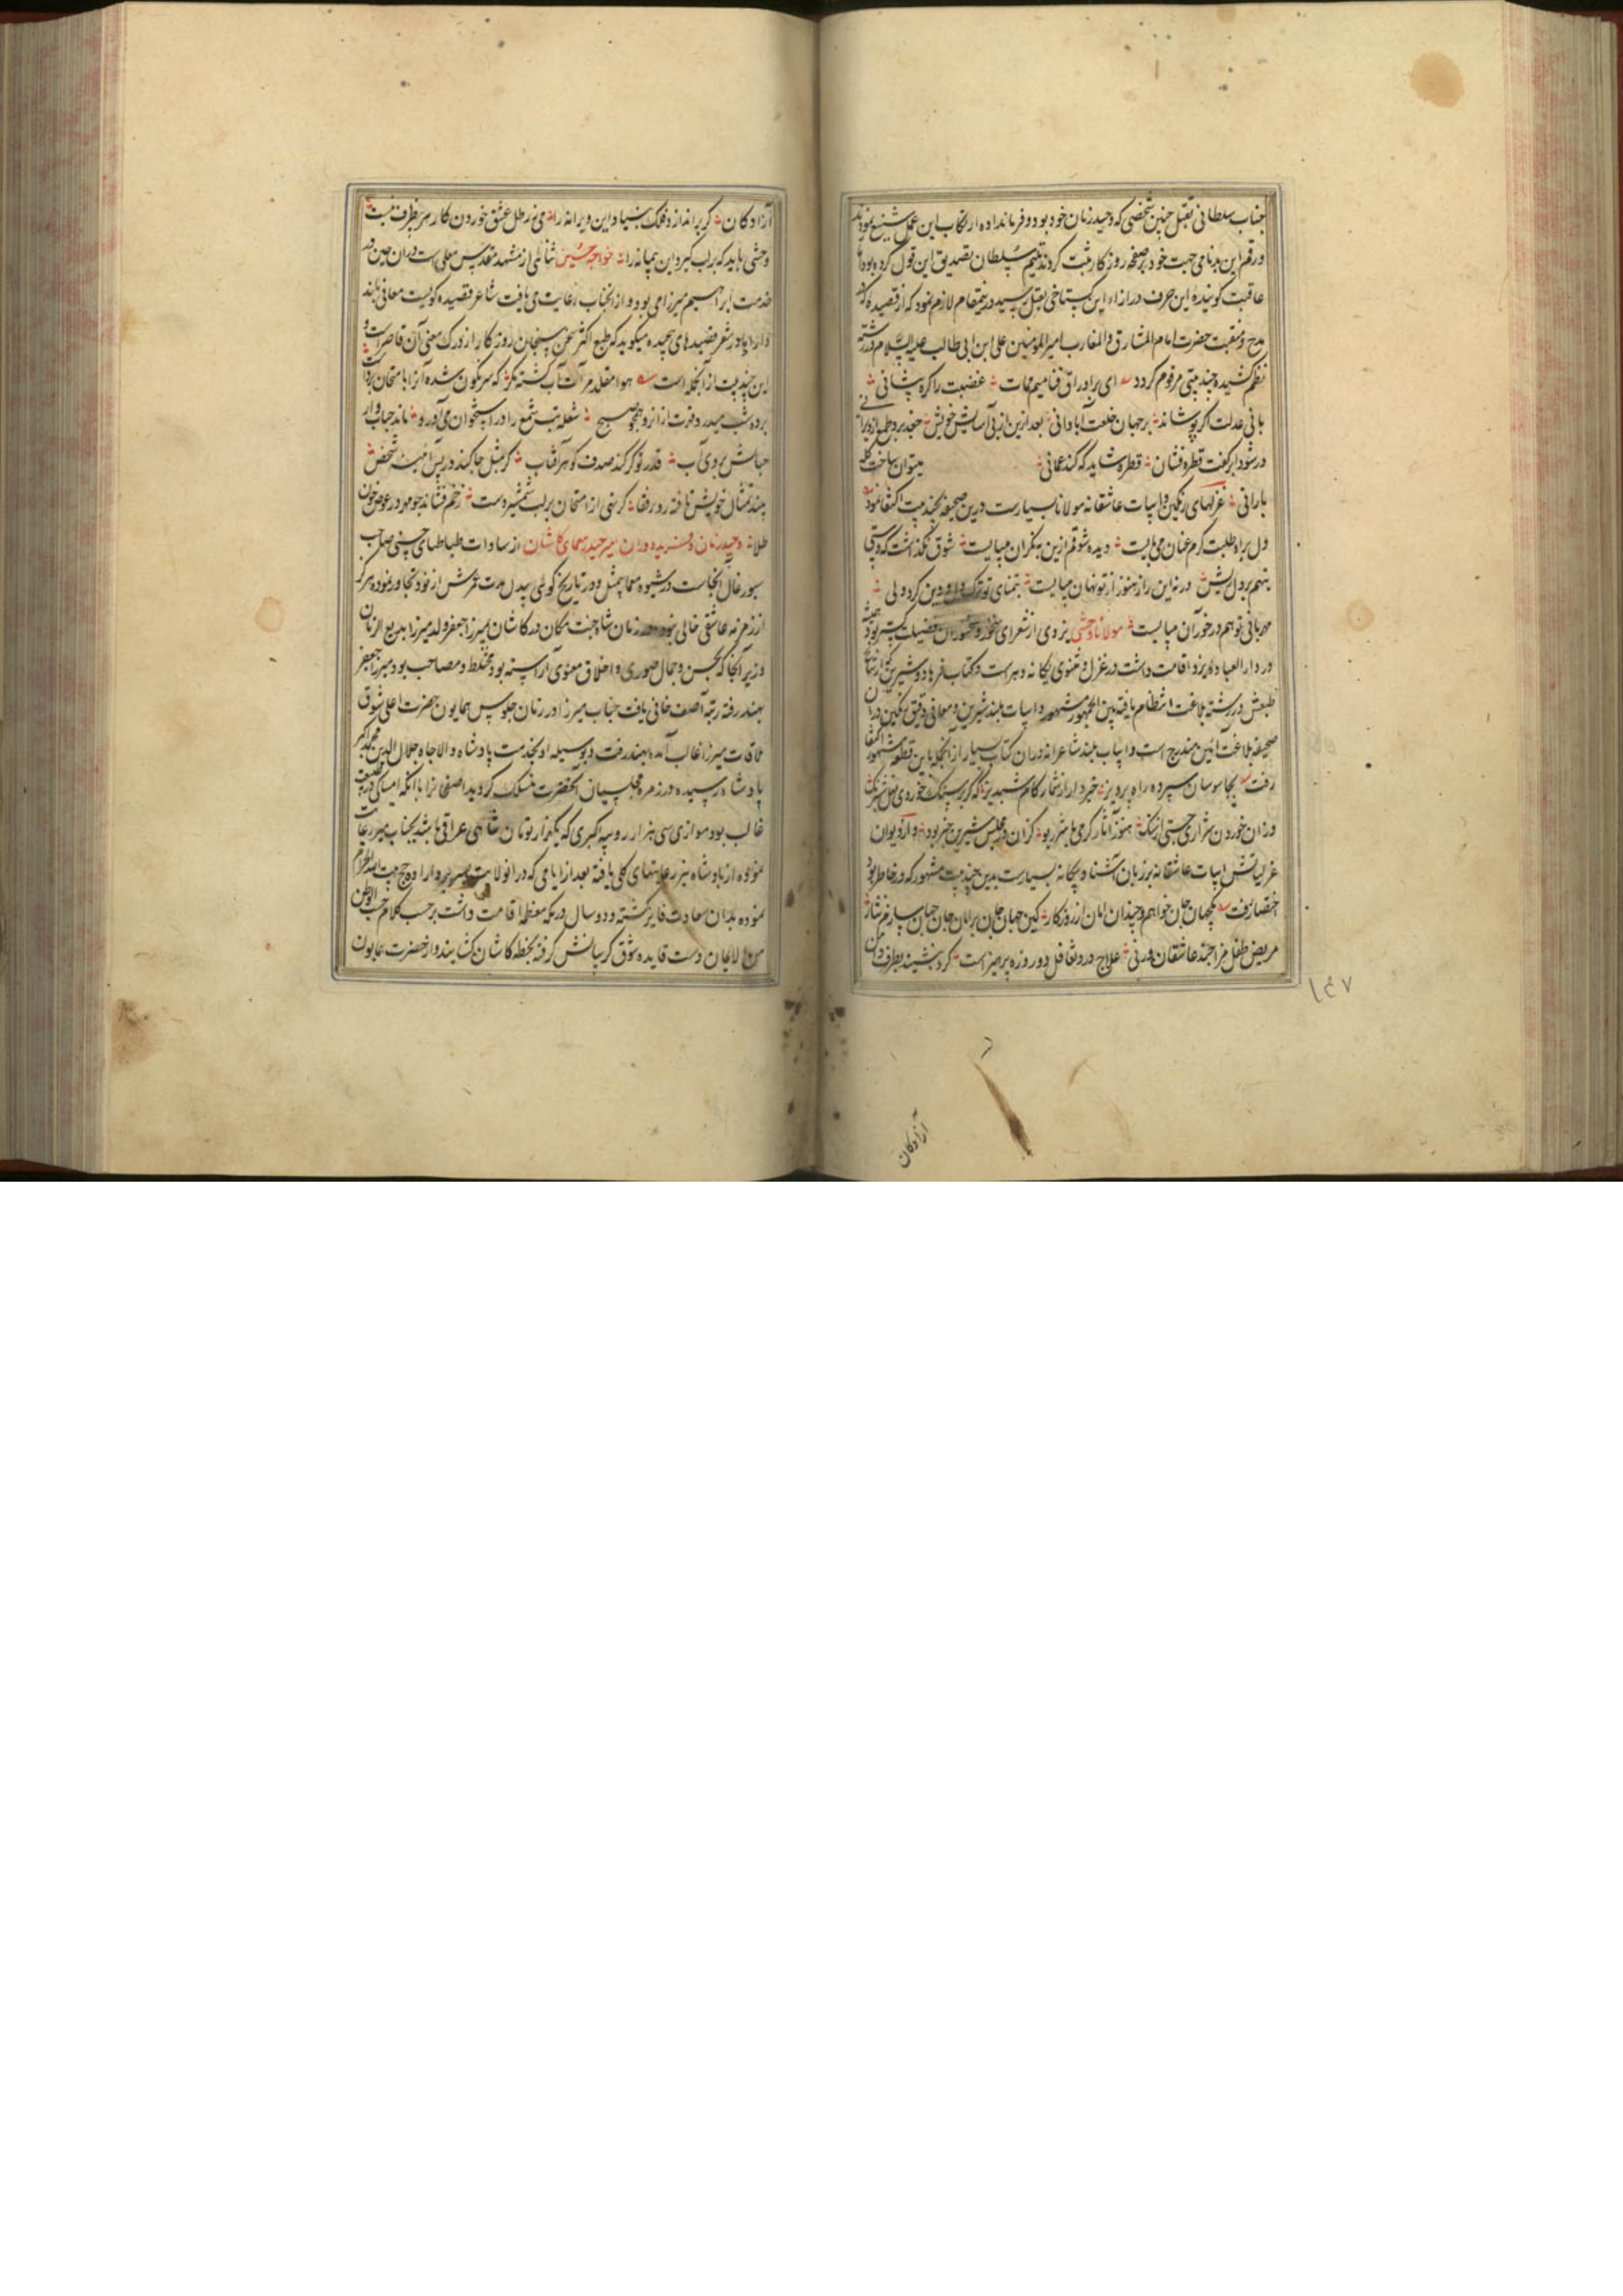 جناب سلطانی بقتل چنین شخصی که وحید زمان خود بود و فرمانداده ارتکاب این عمل شنیع نمودند
ورقم این بدنامی جهت خود بر صفحه روزکار ثبت کردند تیتم سلطان تصدیق این قول کرده بود اما
عاقبت کوینده این حرف در ازاء این کستاخی بقتل رسید درینمقام لازم نمود که از قصیده که در
مدح و منقبت حضرت امام المشارق و المغارب امیر المومنین علی ابن ابی طالب علیه السلام در رشته
نظم کشیده چند بیتی مرقوم کردد ای برابر اوراق غضبت را کره پیشانی
بانی عدلت اکر پوشاند بر جهان خلعت آبادانی بعد ازین از پی آسایش خویش جغد بر دوش
در شود ابر کفت قطره فشان قطره شاید که کند عمانی میتوان ساخت
بارانی غزلهای رنکین و ابیات عاشقانه مولانا بسیارست درین صحیفه بچند بیت اکتفا نمود
دل براه طلبت کرم عنان می بایست دیده شوقم ازین به نکران میبایست شوق نکذاشت که دوستی
بتهم بر دل ریش ورنه این راز هنوز از تو نهان میبایست بتمنای تو ترک دل و دین کرد ولی
مهربانی تو هم در خور آن میبایست مولانا وحشی یزدی از شعرای فضیلت کستر بود همیشه
در دار العباده یزد اقامت داشت در غزل و مثنوی یکانه دهر است و کتاب فرهاد و شیرین که از نتایج
طبعش در رشته بلاغت انتظام یافته بین الجمهور مشهور و ابیات بلند شیرین و معانی دقیق رنکین در آن
صحیفه بلاغت آئین مندرج است و ابیات بلند شاعرانه در آن کتاب بسیار از آنجمله باین قطعه مشهور اکتفا
رفت بجاسوسان سپرده راه پرویز خبردار از شمار کام شبدیز که کر بر سنک خوردی نعل شبرنک
وزان خوردن شراری جستی از سنک هنوز آثار کرمی با شرر بود کزان در مجلس شیرین خبر بود و از دیوان
غزلیاتش ابیات عاشقانه بر زبان آشنا و بیکانه بسیارست بدین چند بیت مشهور که در خاطر بود
اختصار رفت یکجهان جان خواهم و چندان امان از روزکار کین جهان جان بران جان جهان سازم نثار
مریض طفل مزاجند عاشقان ورنی علاج درد تغافل دو روزه پرهیز است کرد بنشیند بطرف دامن
۱۴۷
آزادکان
آزادکان کر براندازد فلک بنیاد این ویرانه را می ز رطل عشق خوردن کار هر بیظرف نیست
وحشی باید که بر لب کیرد این پیمانه را خواجه حسین ثنائی از مشهد مقدس معلی است در آن حین در
خدمت ابراهیم میرزا می بود و از آنجناب رعایت می یافت شاعر قصیده کویست معانی بلند
دارد اما در شعر قصیدهای پیچیده میکوید که طبع اکثر سخن سنجان روزکار از درک معنی آن قاصر است و
این چند بیت از آنجمله است هوا مقلد مرآت آب کشته مکر که سرنکون شده آنرا بامتحان برداشت
برده شب میدرد همچو صبح شعله تب شمع را در استخوان می آورد ماند حباب وار
حبابش بروی آب قدر تو کر کند صدف کوهر آفتاب کر بمثل جا کند در پس آیینه شخص
بیند تمثال خویش تافته رو در قفا کر نهی از امتحان بر لب شمشیر دست زخم فشاند چو مهر در عوض خون
طلا وحید زمان و فرید دوران میر حیدر معمای کاشان از سادات طباطبای حسنی صاحب
سیورغال آنجاست در شیوه معما بیمثل و در تاریخ کوئی بیبدل مدت عمرش از نود تجاوز نموده هرکز
از زمزمه عاشقی خالی نبود در زمان شاه جنت مکان در کاشان بمیرزا جعفر ولد میرزا بدیع الزمان
وزیر آنجا که بحسن و جمال صوری و اخلاق معنوی آراسته بود مختلط و مصاحب بود میرزا جعفر
بهند رفته رتبه آصف خانی یافت جناب میر را در زمان جلوس همایون حضرت اعلی شوق
ملاقات میرزا غالب آمده بهند رفت و بوسیله او بخدمت پادشاه والاجاه جلال الدین محمد اکبر
پادشاه رسیده در زمره مجلسیان آنحضرت منسلک کردید آصفخان را با آنکه امساکی در طبیعت
غالب بود موازی سی هزار روپیه اکبری که یکهزار تومان شاهی عراقی باشد بجناب میر رعایت
نموده از پادشاه نیز رعایتهای کلی یافته بعد از ایامی که در آنولایت بسر برد اراده حج بیت الله الحرام
نموده بدان سعادت فایز کشته و دو سال در مکه معظمه اقامت داشت بر حسب کلام حب الوطن
من الایمان دست قایده شوق کریبانش کرفته بخطه کاشان کشانید و از حضرت همایون